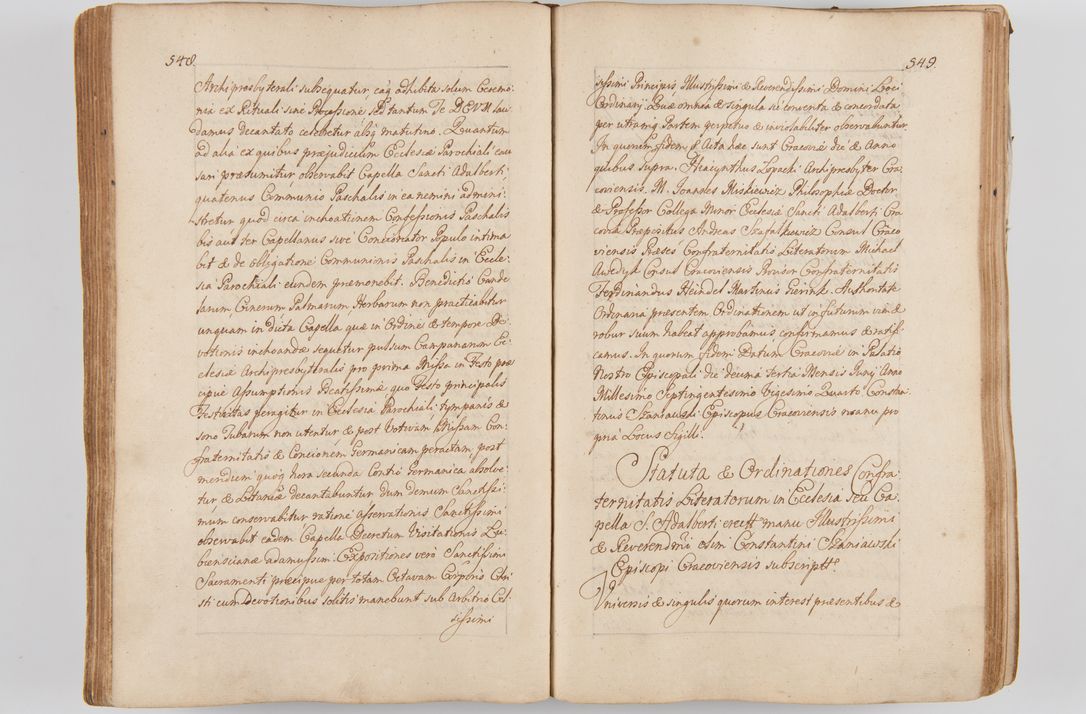 548.
Archipresbyterali subsequatur eaq́ adhibita solum Ceremo-
nia ex Rituali sine Processione sed tantum Te DEVM lau-
damus decantato celebretur absq́ matutino. Quantum
ad alia ex quibus præjudicium Ecclesiæ Parochiali cau-
sari præsumitur, observabit Capella Sancti Adalberti,
quatenus Communio Paschalis in ea nemini admini-
stretur quod circa inchoationem Confessionis Paschalis
bis aut ter Capellanus sive Concionator Populo intima
bit & de obligatione Communionis Paschalis in Eccle-
sia Parochiali eundem præmonebit. Benedictio Cande
larum, Cinerum Palmarum, Herbarum non practicabitur
unquam in dicta Capella, quæ in Ordine & tempore De-
votionis inchoandæ sequetur pulsum Campanarum Ec-
clesiæ Archipresbyteralis pro prima Missa in Festo præ
cipuè Assumptionis Beatissimæ quo Festo principalis
Festivitas peragitur in Ecclesia Parochiali, tympanis &
sono Tubarum non utentur & post Votivam Missam Con-
fraternitatis & Concionem Germanicam peractam, post
meridiem quoq́ hora secunda Contio Germanica absolve-
tur, & Litaniæ decantabuntur dum demum Sanctissi-
mum conservabitur ratione asservationis Sanctissimi
observabit eadem Capella Decretum Visitationis Lu-
bienscianæ adamussim. Expositiones verò Sanctissimi
Sacramenti præcipue per totam Octavam Corporis Chri-
sti cum Devotionibus solitis manebunt sub Arbitrio Cel-
sissimi
549.
sissimi Principis Illustrissimi & Reverendissimi Domini Loci
Ordinarij. Quæ omnia & singula sic conventa & concordata
per utramq́ Partem perpetuo & inviolabiliter observabuntur
In quorum fidem & Acta hæc sunt Cracoviæ die & Anno
quibus supra. Hyacynthus Łopacki Archipresbyter Cra-
coviensis. M. Joannes Miskiewicz Philosophiæ Doctor
& Professor Collega Minor Ecclesiæ Sancti Adalberti Cra
coviæ Præpositus Andreas Szafaskowicz Consul Craco
viensis Præses Confraternitatis Literatorum Michael
Awedyk Consul Cracoviensis Provisor Confraternitatis
Ferdinandus Heindel Martinus Gierink. Authoritate
Ordinaria præsentem Ordinationem ut in futurum vim &
robur suum habeat approbamus confirmamus & ratifi-
camus. In quorum fidem Datum Cracoviæ in Palatio
Nostro Episcopali die decima tertia Mensis Junij Anno
Millesimo Septingentesimo Vigesimo Quarto Constan
tinus Szaniawski Episcopus Cracoviensis manu pro
pria Locus Sigilli.
Statuta & Ordinationes Confra-
ternitatis Literatorum in Ecclesia seu Ca-
pella S. Adalberti erectæ manu Illustrissimi
& Reverendmi olim Constantini Szaniawski
Episcopi Cracoviensis subscriptæ
Universis & singulis quorum interest præsentibus &